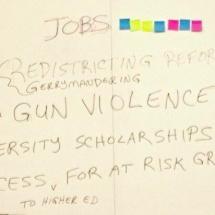 JOBS
REDISTRICTING REFOR
GERRYMANDERING
GUN VIOLENCE
ERSITY SCHOLARSHIPS
CESS, FOR AT RISK GR
TO HIGHER ED